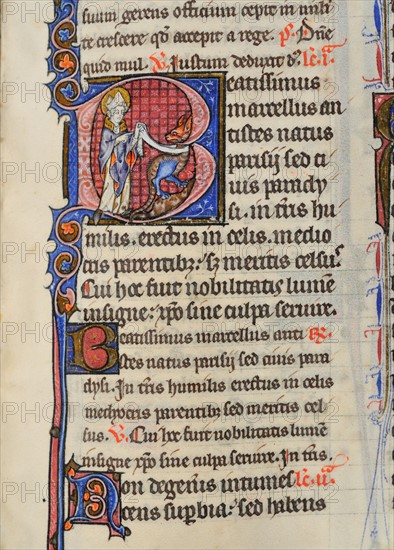 suum gerens officium cepit in mili
te crescere qd accepit a rege. p̄s. Dn̄e
quid mul. V̄. Iustum deduxit d̄s. lc̄.i.ͣ
Beatissimus
marcellus an
tistes natus
parisij sed ci
uis parady
si. in tr̄is hu
milis. erectus in celis. medio
cris parentibꝫ: sꝫ meritis celsus.
Cui hoc fuit nobilitatis lumē
insigne: xp̄o sine culpa seruire.
Beatissimus marcellus anti R̄.
stes natus parisij sed ciuis para
dysi. In tr̄is humilis erectus in celis
mediocris parentibꝫ sed meritis cel
sus. V̄. Cui hoc fuit nobilitatis lumē
insigne xp̄o sine culpa seruire. In tr̄is.
Non degerius intumes lc̄.ii.ͣ
cens supbia: sed habens